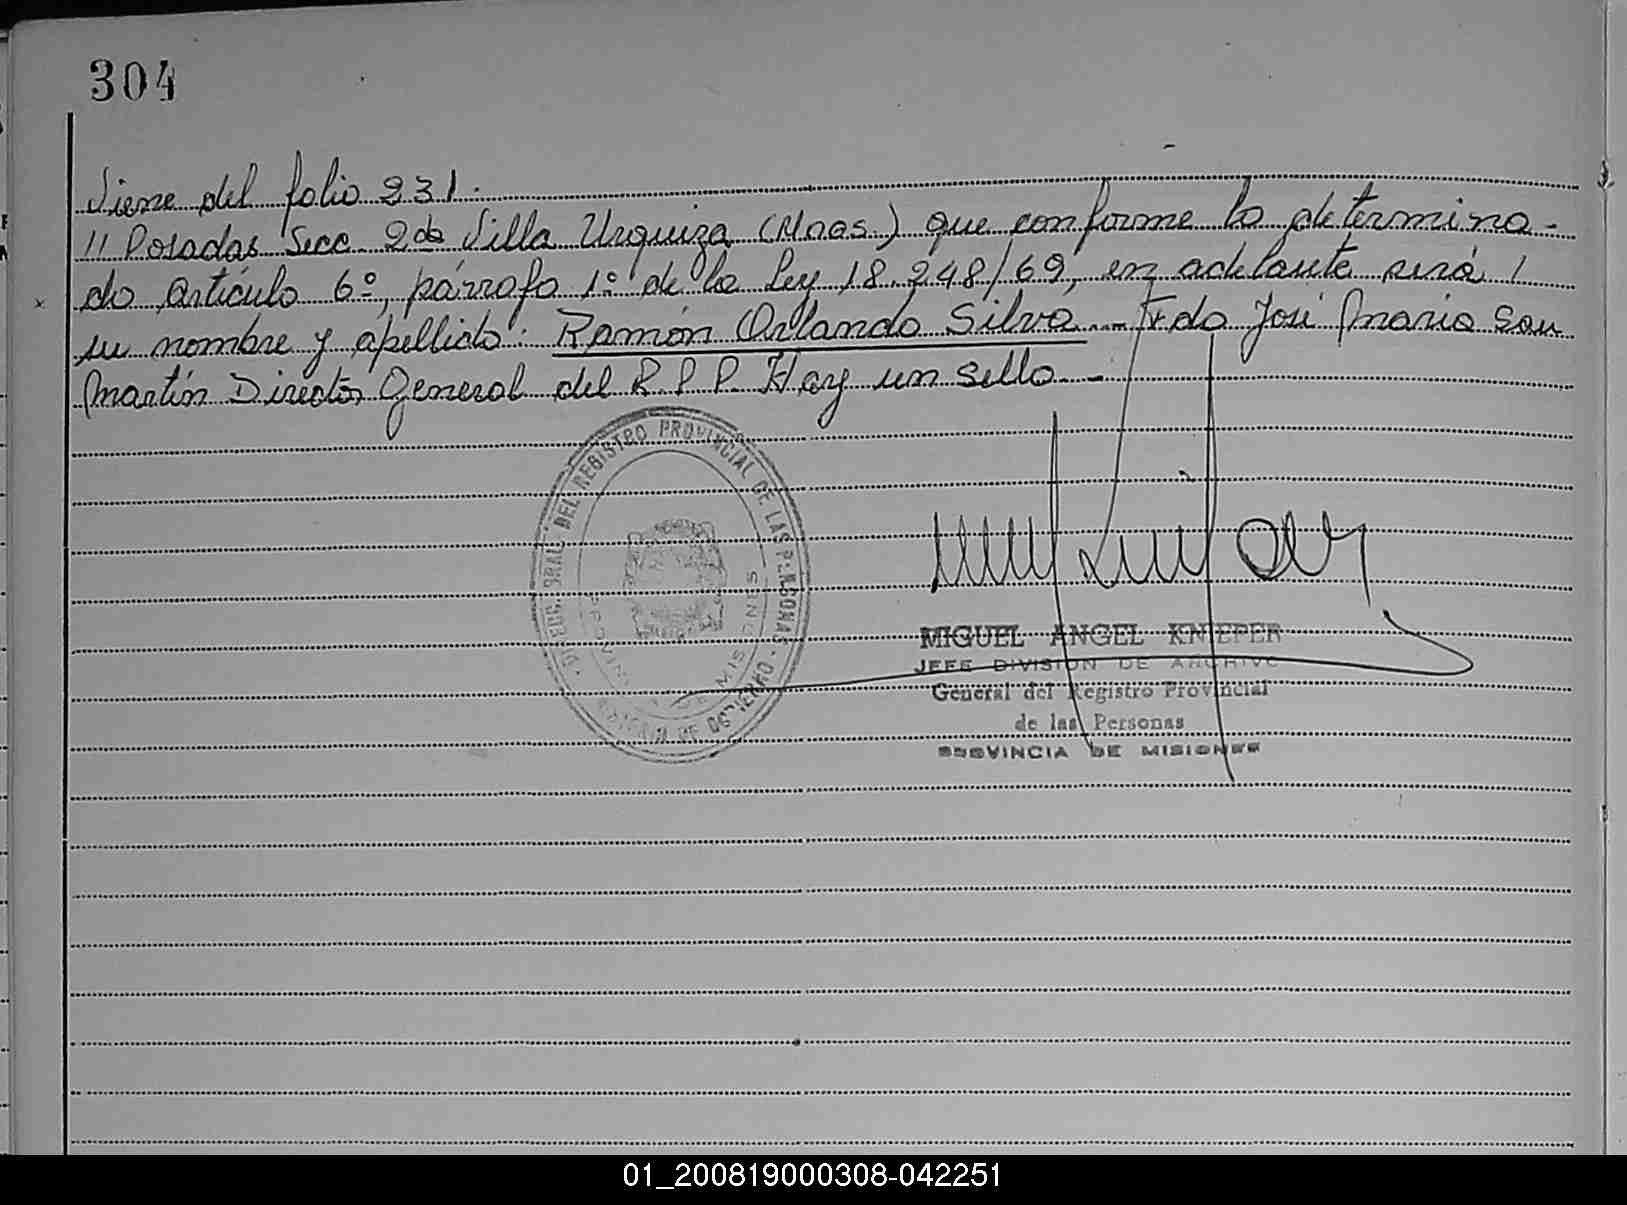 304
Viene del folio 231.
// Posadas Secc. 2da Villa Urquiza (Mnes.) que conforme lo determina-
do artículo 6º, párrafo 1º de la Ley 18.248/69, en adelante será /
su nombre y apellido: Ramón Orlando Silva. — Fdo José María San
Martín Director General del R.P.P. Hay un sello. —
DIRECC. GRAL. DEL REGISTRO PROVINCIAL DE LAS PERSONAS -
PROVINCIA DE MISIONES
MIGUEL ANGEL KNIEPER
JEFE DIVISION DE ARCHIVO
General del Registro Provincial
de las Personas
PROVINCIA DE MISIONES
01_200819000308-042251